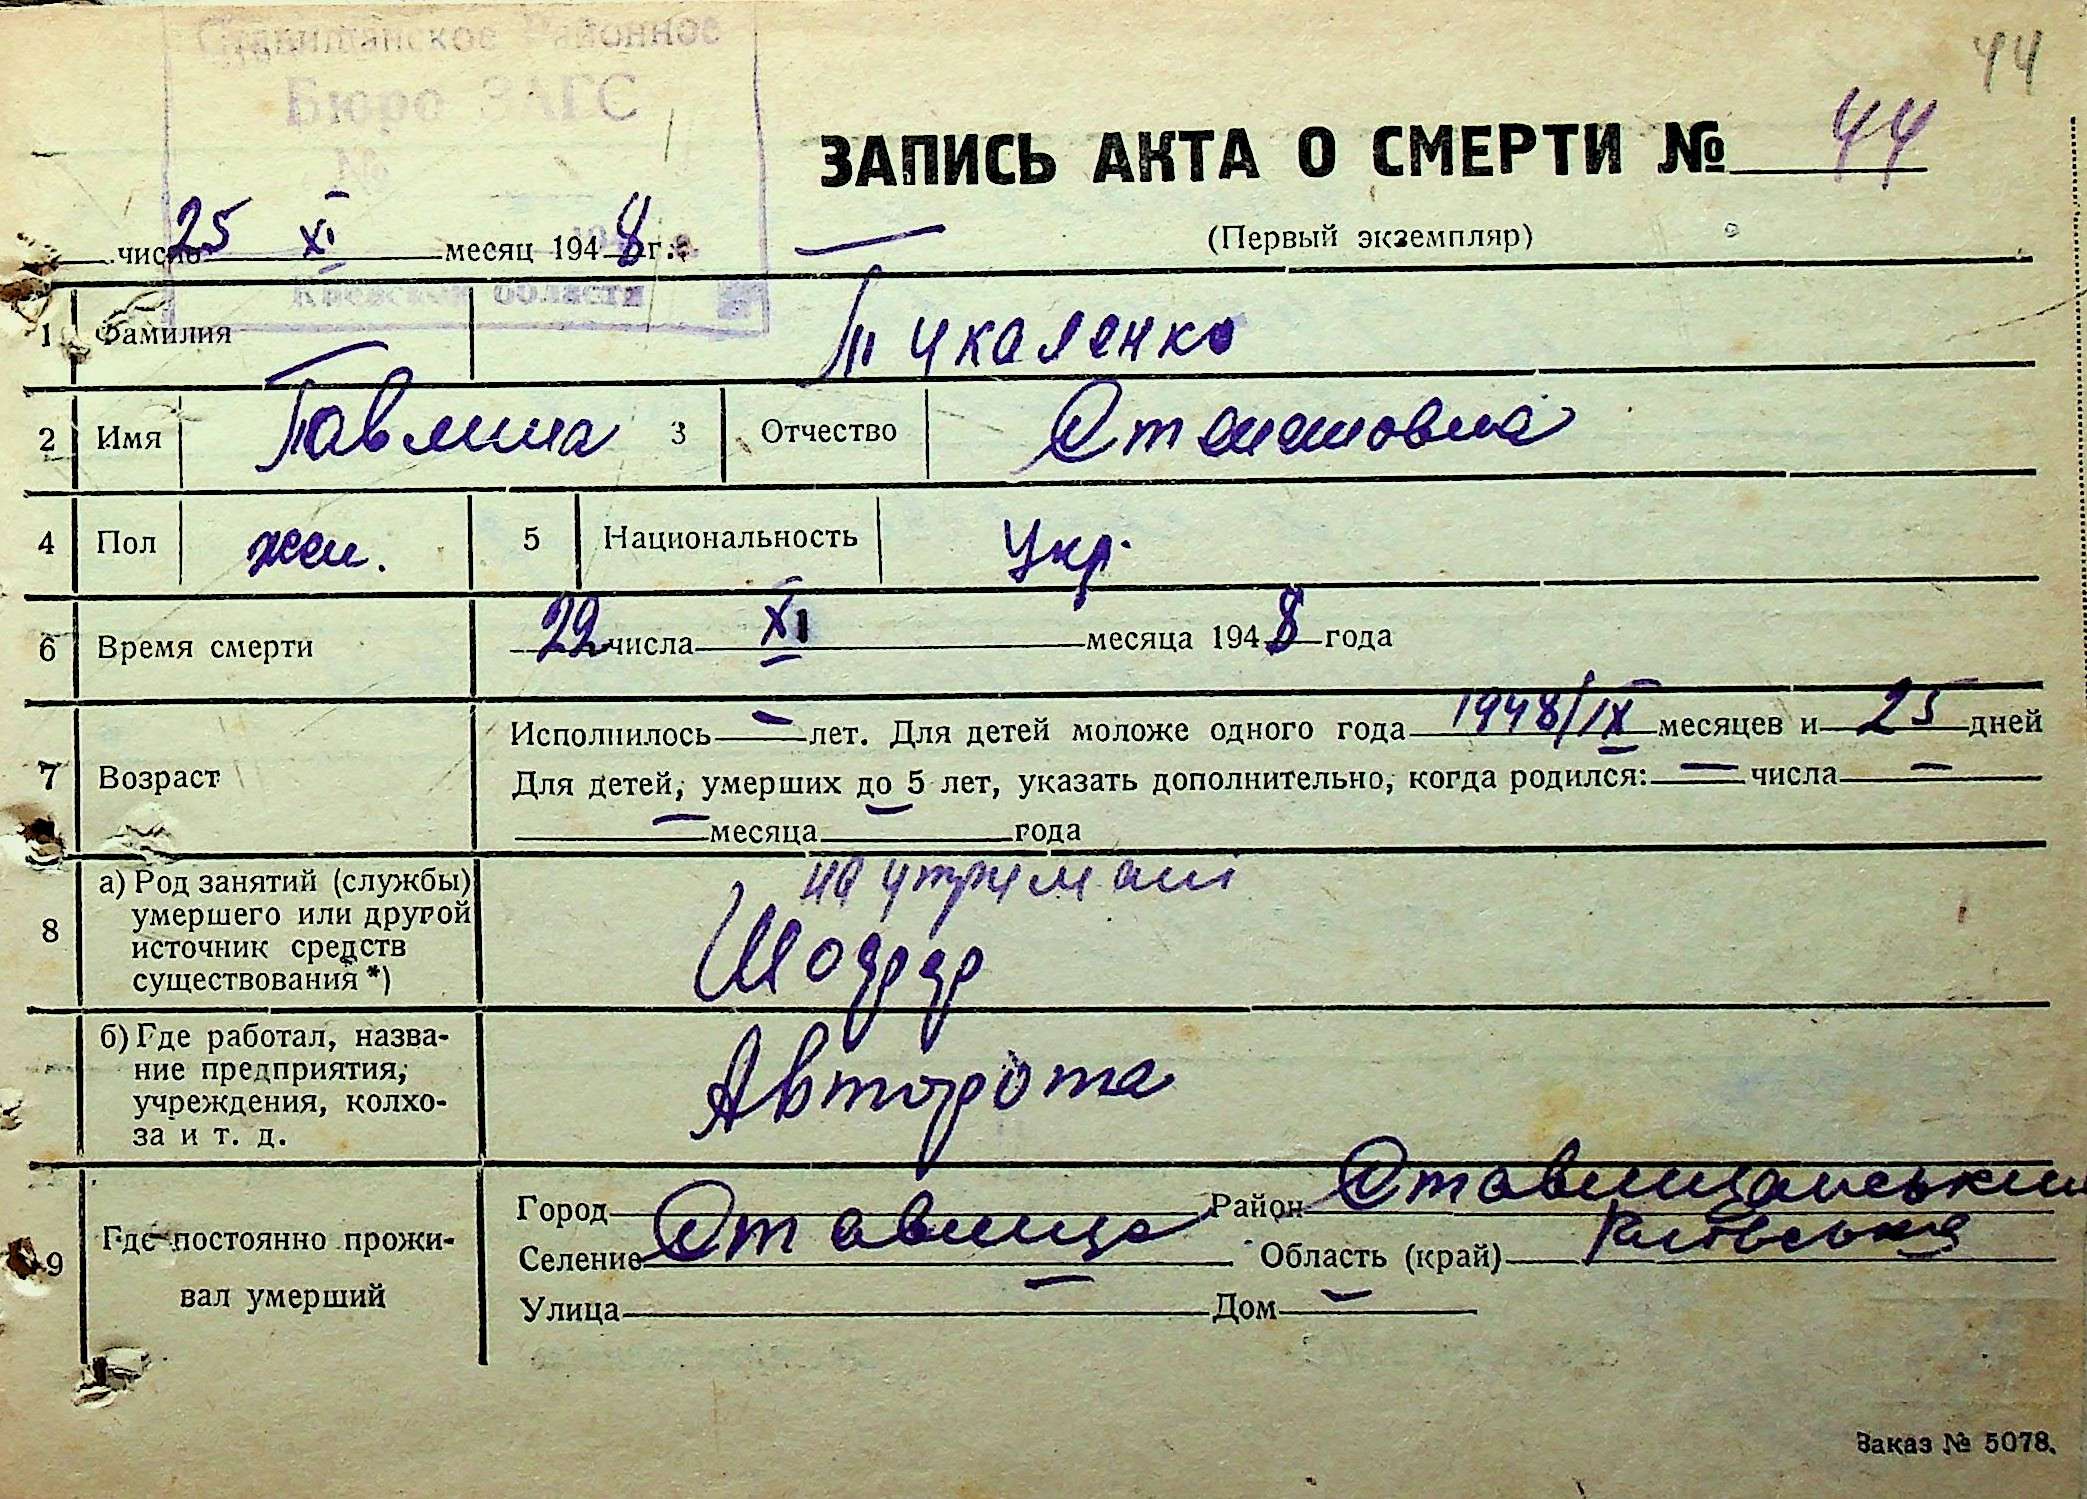 44
Ставищанское Районное
Бюро ЗАГС
№
Киевской области
ЗАПИСЬ АКТА О СМЕРТИ № 44
(Первый экземпляр)
число 25 XI месяц 1948 г.
1 Фамилия Тукаленко
2 Имя Павлина 3 Отчество Степановна
4 Пол жен. 5 Национальность Укр.
6 Время смерти 22 числа XI месяца 1948 года
7 Возраст
Исполнилось — лет. Для детей моложе одного года 1948/IX месяцев и 25 дней
Для детей, умерших до 5 лет, указать дополнительно, когда родился: — числа —
— месяца — года
8 а) Род занятий (службы)
умершего или другой
источник средств
существования *)
на утримані
Шофер
б) Где работал, назва-
ние предприятия,
учреждения, колхо-
за и т. д.
Авторота
9 Где постоянно прожи-
вал умерший
Город Район Ставищанський
Селение Ставище Область (край) Київська
Улица — Дом —
Заказ № 5078.